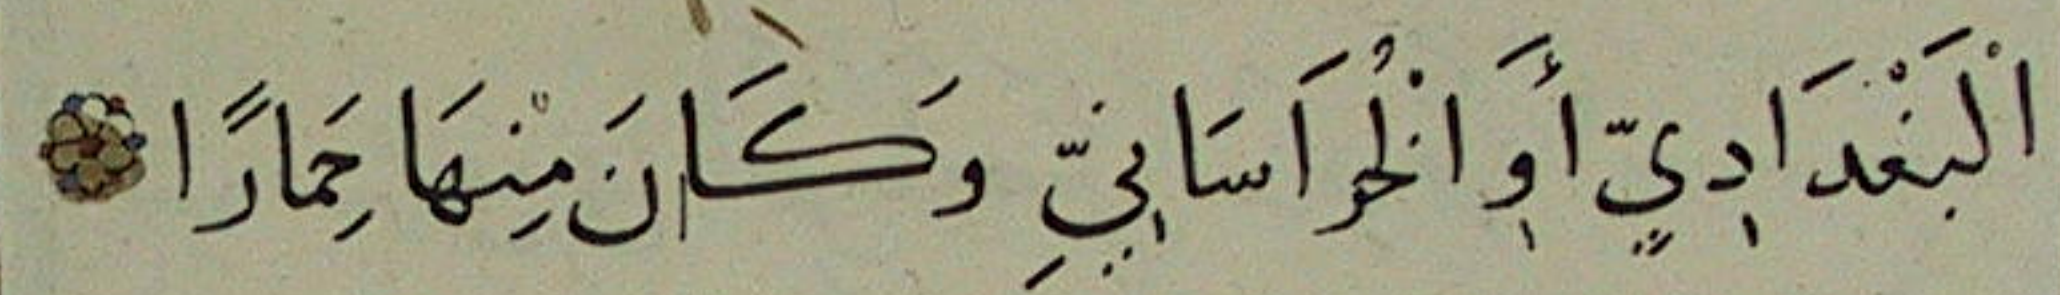 الْبَغْدَادِيِّ أَوِ الْخُرَاسَانِيِّ وَكَانَ مِنْهَا حِمَارًا